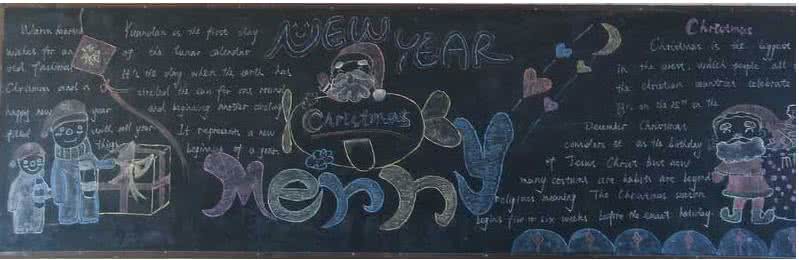 NEW YEAR
Warm hearted
wishes for an
old fashioned
Christmas and a
happy new year
filled with all your
things
Yuandan is the first day
of the lunar calendar
It's the day when the earth has
circled the sun for one round
and beginning another circling
It represents a new
beginning of a year
Christmas
Merry
Christmas
Christmas is the biggest
in the west, which people all
the christian countries celebrate
it on the 25th on the
December Christmas
considers as the birthday
of Jesus Christ but now
many costums are habits are beyond
religious meaning The Christmas season
begins five to six weeks before the exact holiday.